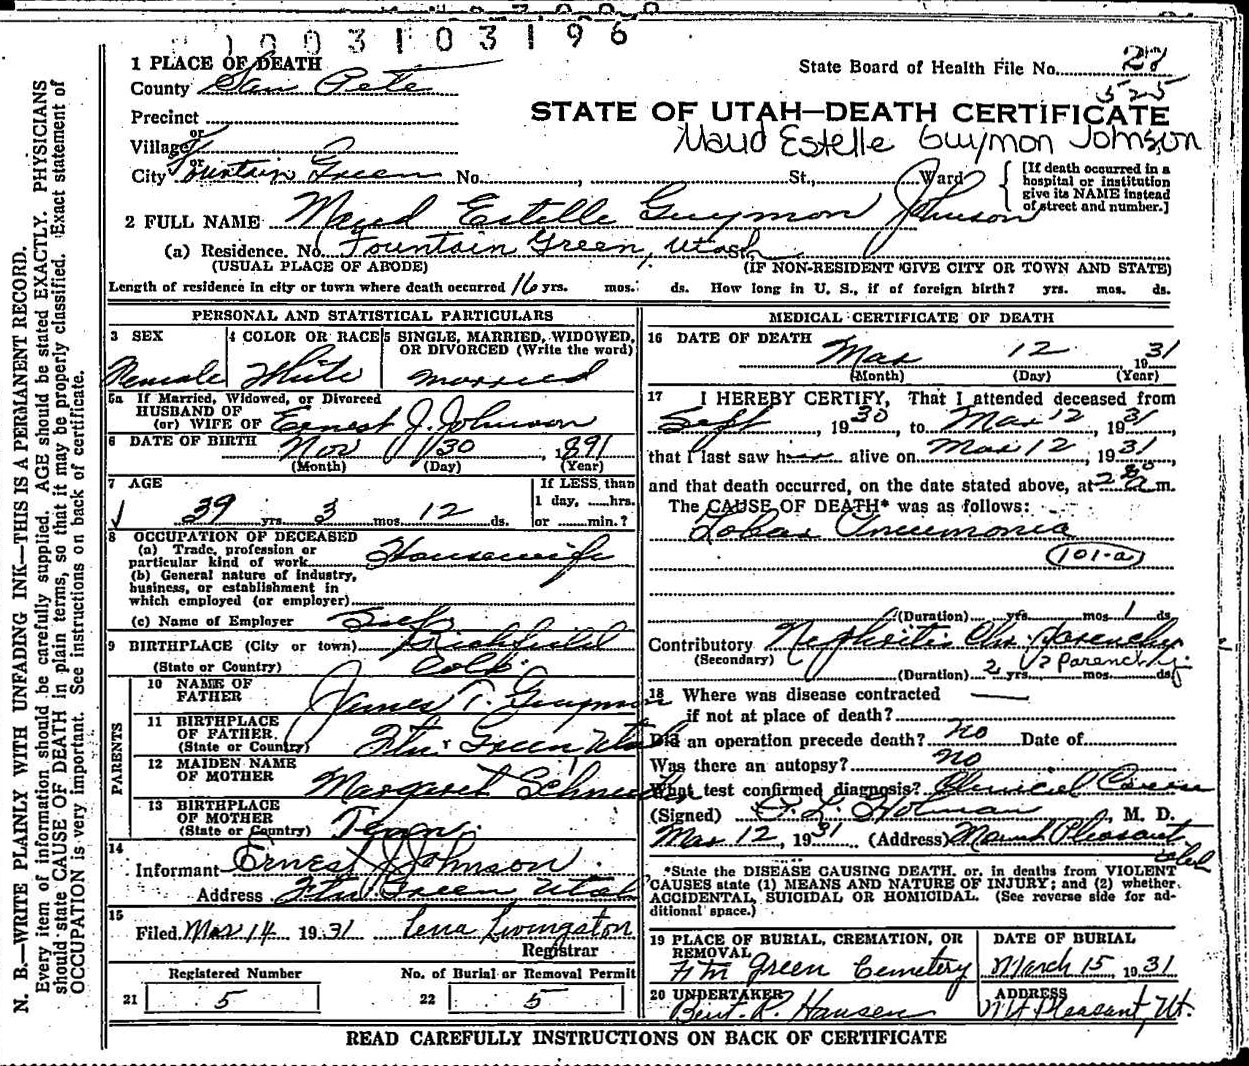 1003103196
1 PLACE OF DEATH
State Board of Health File No. 27
525
County San Pete
STATE OF UTAH—DEATH CERTIFICATE
Precinct
or
Maud Estelle Guymon Johnson
Village
or
City Fountain Green No. , St., Ward
[If death occurred in a hospital or institution give its NAME instead of street and number.]
2 FULL NAME Maud Estelle Guymon Johnson
(a) Residence. No. Fountain Green, Utah
(USUAL PLACE OF ABODE) (IF NON-RESIDENT GIVE CITY OR TOWN AND STATE)
Length of residence in city or town where death occurred 16 yrs. mos. ds. How long in U. S., if of foreign birth? yrs. mos. ds.
PERSONAL AND STATISTICAL PARTICULARS
3 SEX 4 COLOR OR RACE 5 SINGLE, MARRIED, WIDOWED, OR DIVORCED (Write the word)
Female White married
5a If Married, Widowed, or Divorced
HUSBAND OF
(or) WIFE OF Ernest J. Johnson
6 DATE OF BIRTH Nov 30 1891
(Month) (Day) (Year)
7 AGE If LESS than
1 day, hrs.
39 yrs. 3 mos. 12 ds. or min.?
8 OCCUPATION OF DECEASED
(a) Trade, profession or
particular kind of work Housewife
(b) General nature of industry,
business, or establishment in
which employed (or employer)
(c) Name of Employer Self
9 BIRTHPLACE (City or town) Richfield
(State or Country) Colo.
PARENTS
10 NAME OF
FATHER James T. Guymon
11 BIRTHPLACE
OF FATHER.
(State or Country) Ftn. Green Utah
12 MAIDEN NAME
OF MOTHER Margaret
13 BIRTHPLACE
OF MOTHER
(State or Country) Tenn.
14
Informant Ernest J Johnson
Address Ftn Green Utah
15
Filed Mar 14 1931 Lena Livingston
Registrar
Registered Number No. of Burial or Removal Permit
21 5 22 5
MEDICAL CERTIFICATE OF DEATH
16 DATE OF DEATH
Mar 12 1931
(Month) (Day) (Year)
17 I HEREBY CERTIFY, That I attended deceased from
Sept, 1930, to Mar 12, 1931,
that I last saw her alive on Mar 12, 1931,
and that death occurred, on the date stated above, at m.
The CAUSE OF DEATH* was as follows:
Lobar Pneumonia
101-a
(Duration) yrs. mos. 1 ds.
Contributory Nephritis Chr. Parenchy
(Secondary)
(Duration) 2 yrs. mos. ds.
18 Where was disease contracted
if not at place of death?
Did an operation precede death? no Date of
Was there an autopsy? no
What test confirmed diagnosis? Clinical
(Signed) P. L. Holman, M. D.
Mar 12, 1931 (Address) Mount Pleasant
Utah
*State the DISEASE CAUSING DEATH, or, in deaths from VIOLENT
CAUSES state (1) MEANS AND NATURE OF INJURY; and (2) whether
ACCIDENTAL, SUICIDAL OR HOMICIDAL. (See reverse side for ad-
ditional space.)
19 PLACE OF BURIAL, CREMATION, OR REMOVAL DATE OF BURIAL
Ftn Green Cemetery March 15, 1931
20 UNDERTAKER ADDRESS
Bent. R. Hansen Mt Pleasant, Ut.
READ CAREFULLY INSTRUCTIONS ON BACK OF CERTIFICATE
N. B.—WRITE PLAINLY WTH UNFADING INK—THIS IS A PERMANENT RECORD.
Every item of information should be carefully supplied. AGE should be stated EXACTLY. PHYSICIANS
should state CAUSE OF DEATH in plain terms, so that it may be properly classified. Exact statement of
OCCUPATION is very important. See instructions on back of certificate.